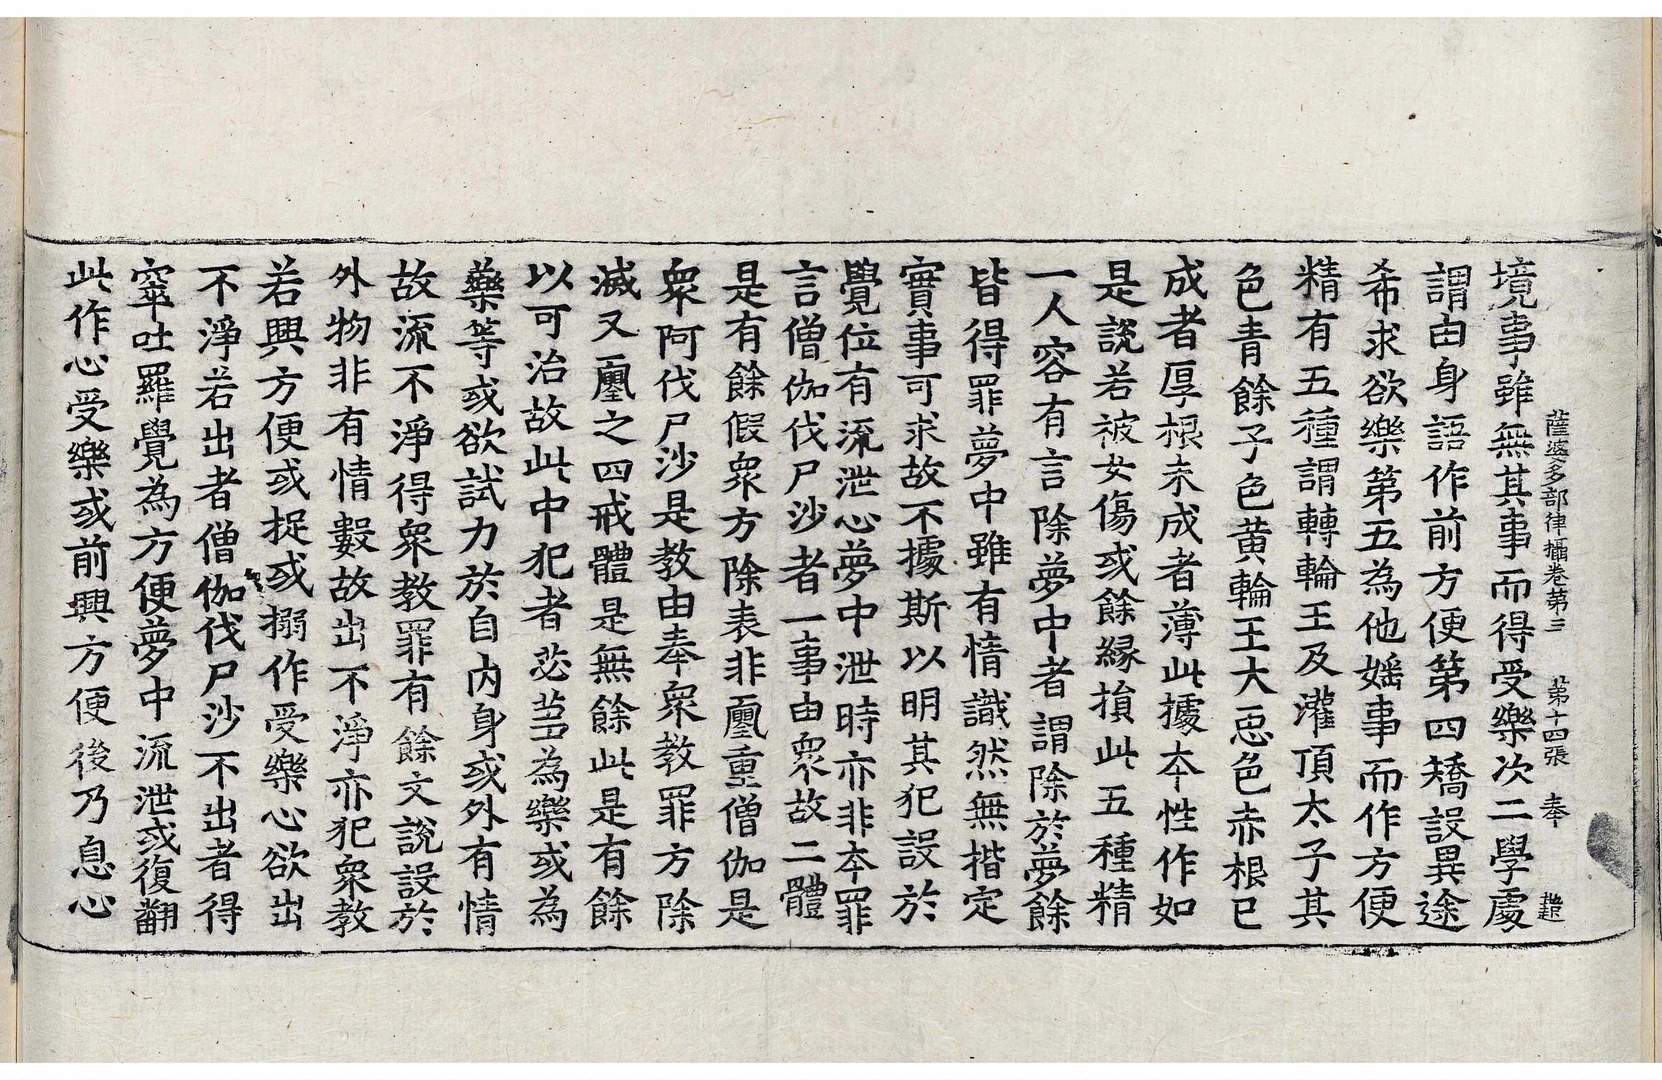 薩婆多部律攝卷第三 第十四張 奉
境事雖無其事而得受樂次二學處
謂由身語作前方便第四矯設異途
希求欲樂第五為他婬事而作方便
精有五種謂轉輪王及灌頂太子其
色青餘子色黃輪王大臣色赤根已
成者厚根未成者薄此據本性作如
是說若被女傷或餘緣損此五種精
一人容有言除夢中者謂除於夢餘
皆得罪夢中雖有情識然無揩定
實事可求故不據斯以明其犯設於
覺位有流泄心夢中泄時亦非本罪
言僧伽伐尸沙者一事由眾故二體
是有餘假眾方除表非㓙重僧伽是
眾阿伐尸沙是教由奉眾教罪方除
滅又㓙之四戒體是無餘此是有餘
以可治故此中犯者苾芻為樂或為
藥等或欲試力於自內身或外有情
故流不淨得眾教罪有餘文說設於
外物非有情數故出不淨亦犯眾教
若興方便或捉或搦作受樂心欲出
不淨若出者僧伽伐尸沙不出者得
窣吐羅覺為方便夢中流泄或復翻
此作心受樂或前興方便後乃息心